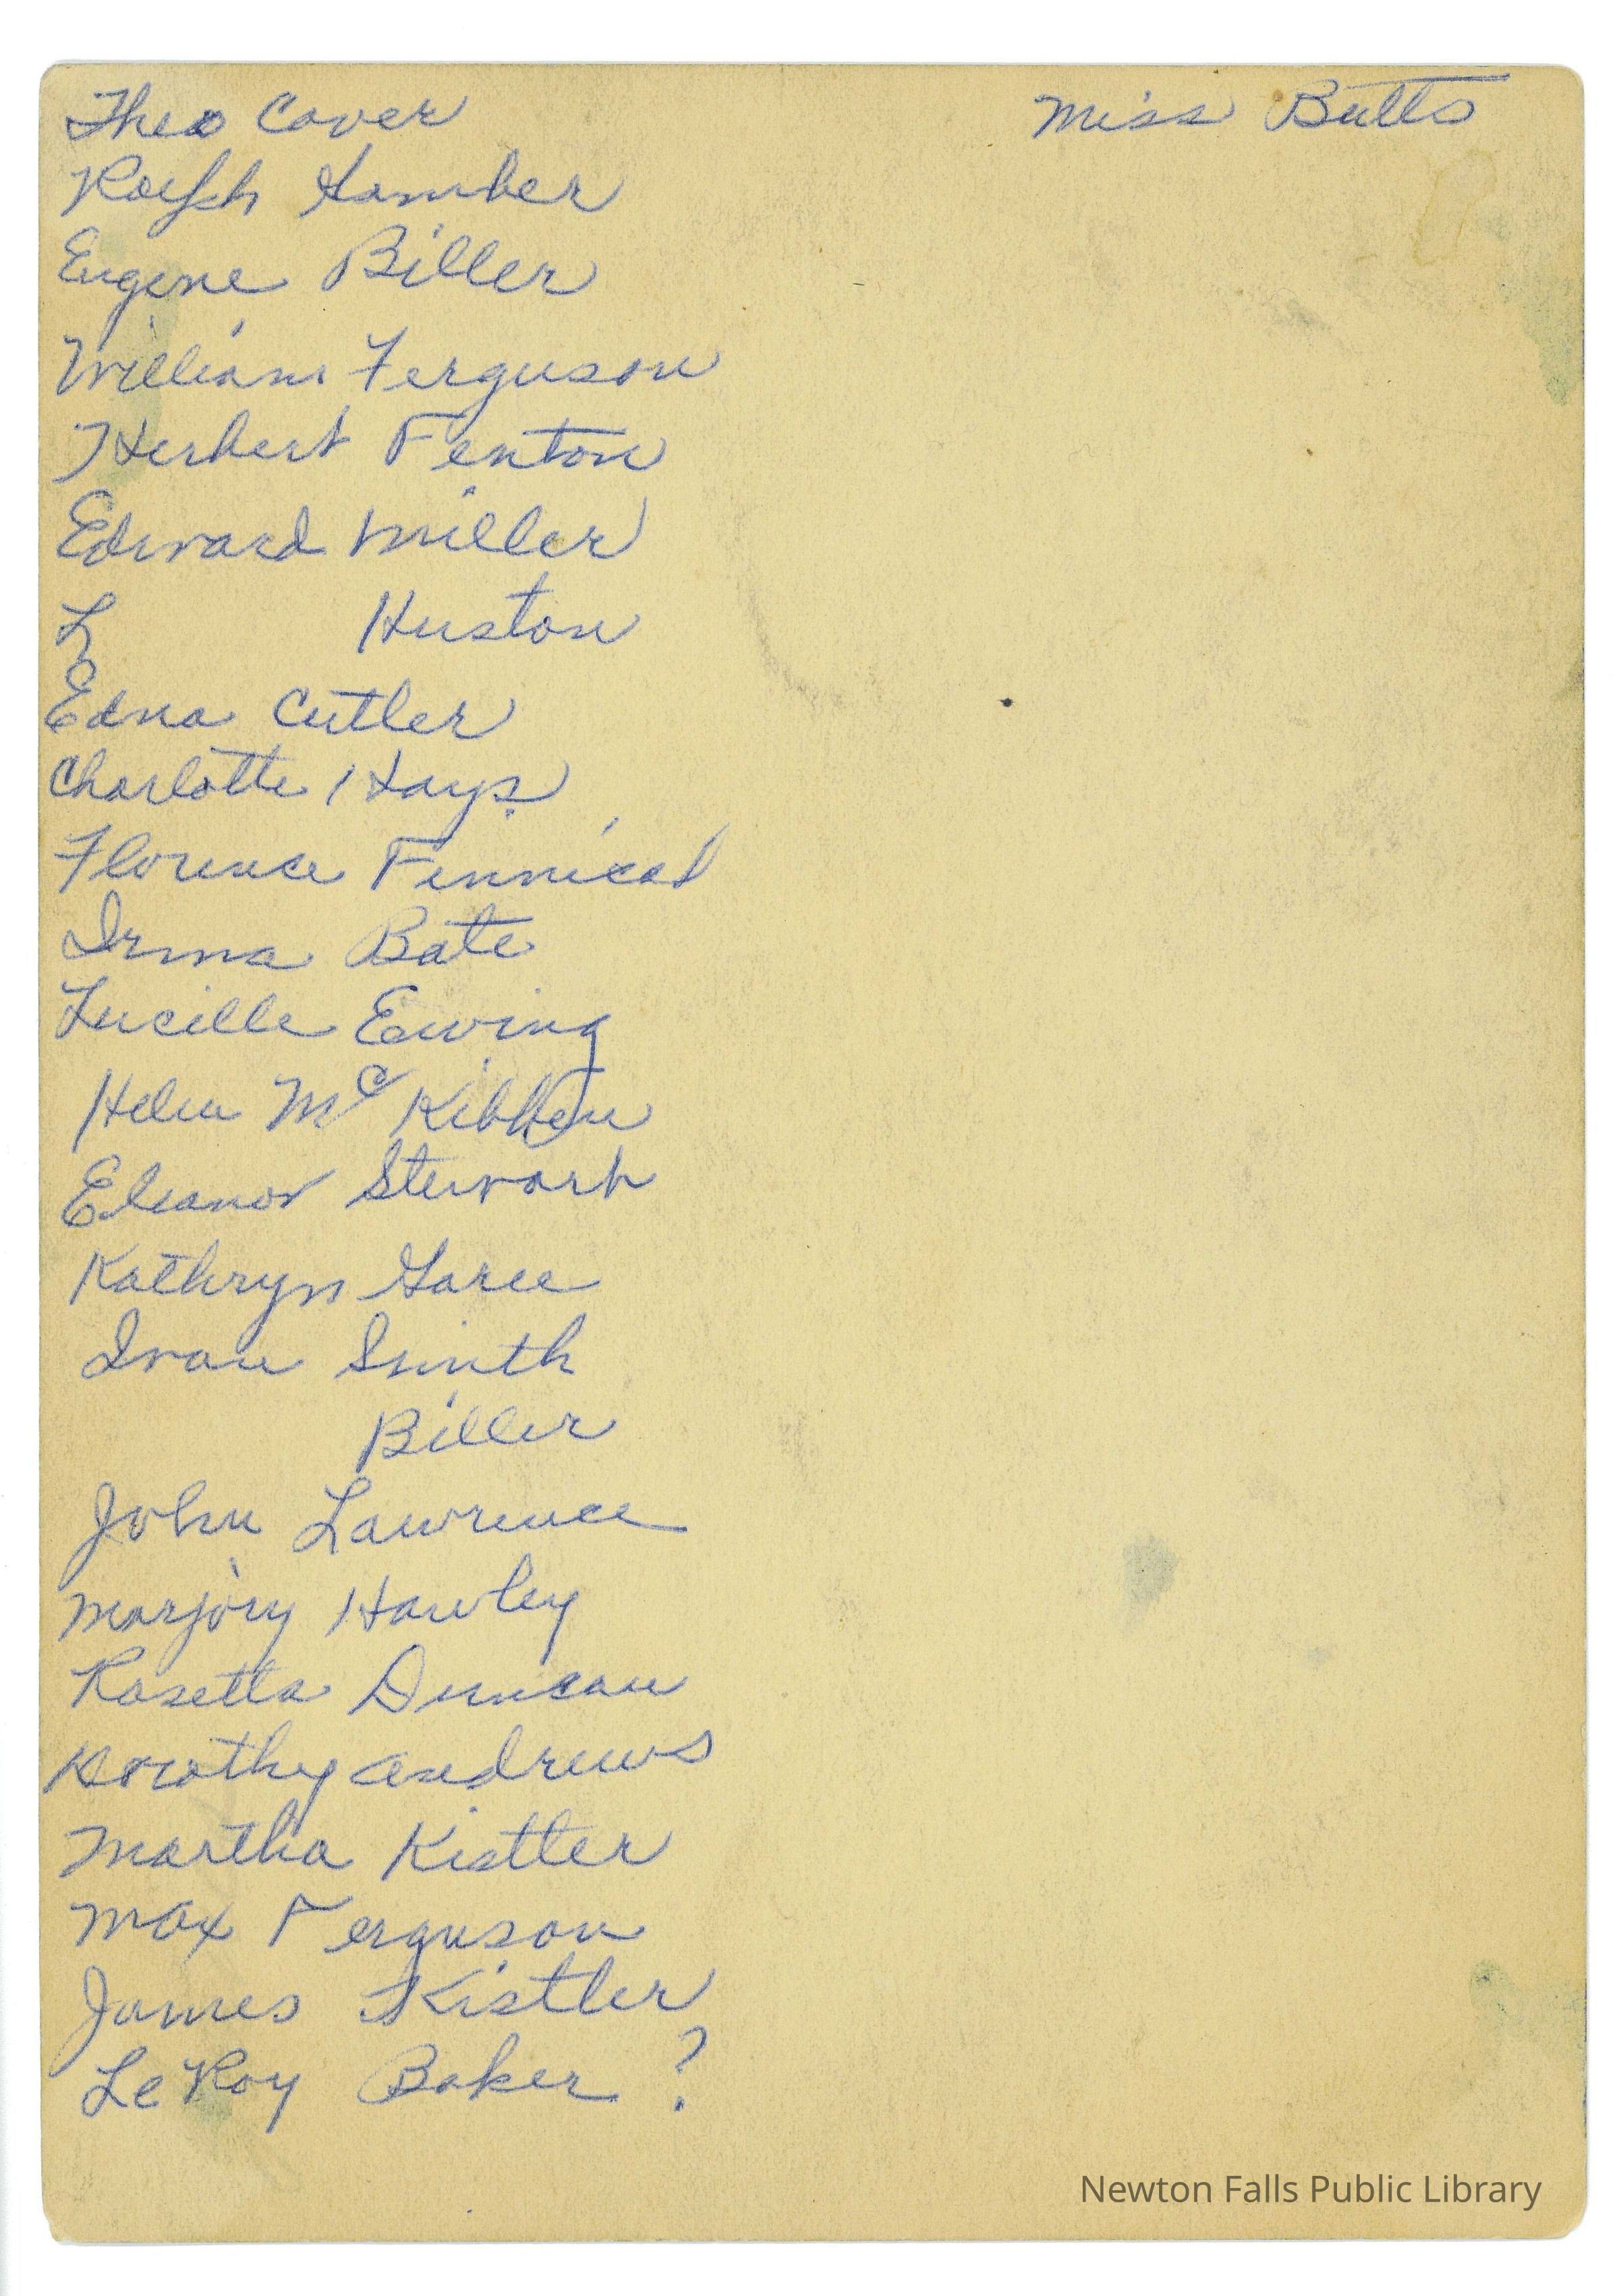 Theo Cover
Miss Butts
Ralph Gamber
Eugene Biller
William Ferguson
Herbert Fenton
Edward Miller
L Huston
Edna Cutler
Charlotte Hays
Florence Fennical
Irma Bate
Lucille Ewing
Helen McKibben
Eleanor Stewart
Kathryn Garee
Ivan Smith
Biller
John Lawrence
Marjory Hawley
Rosetta Duncan
Dorothy Andrews
Martha Kistler
Max Ferguson
James Kistler
LeRoy Baker ?
Newton Falls Public Library